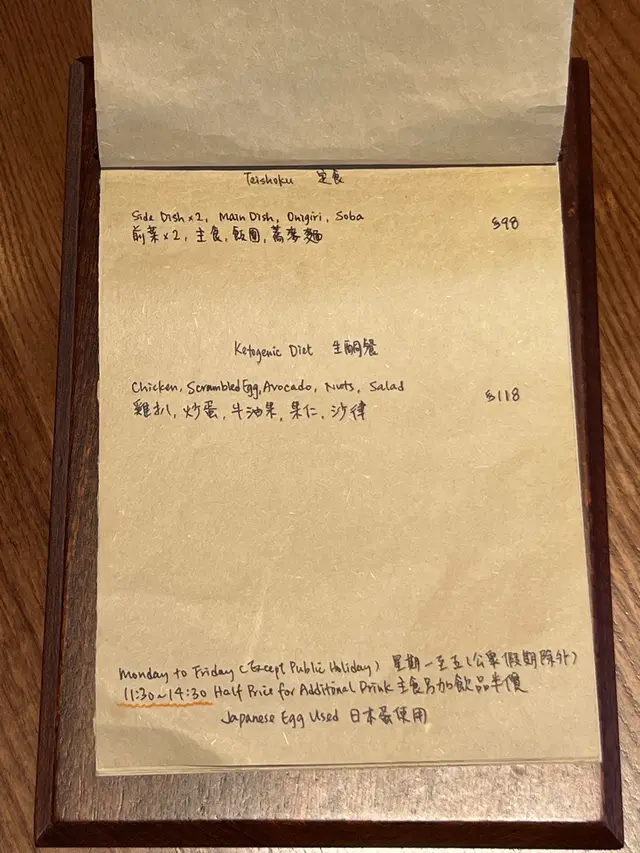 Teishoku 定食
Side Dish x 2, Main Dish, Onigiri, Soba
$98
前菜 x 2, 主食, 飯團, 蕎麥麵
Ketogenic Diet 生酮餐
Chicken, Scrambled Egg, Avocado, Nuts, Salad
$118
雞扒, 炒蛋, 牛油果, 果仁, 沙律
Monday to Friday (Except Public Holiday) 星期一至五(公眾假期除外)
11:30~14:30 Half Price for Additional Drink 主食另加飲品半價
Japanese Egg Used 日本蛋使用